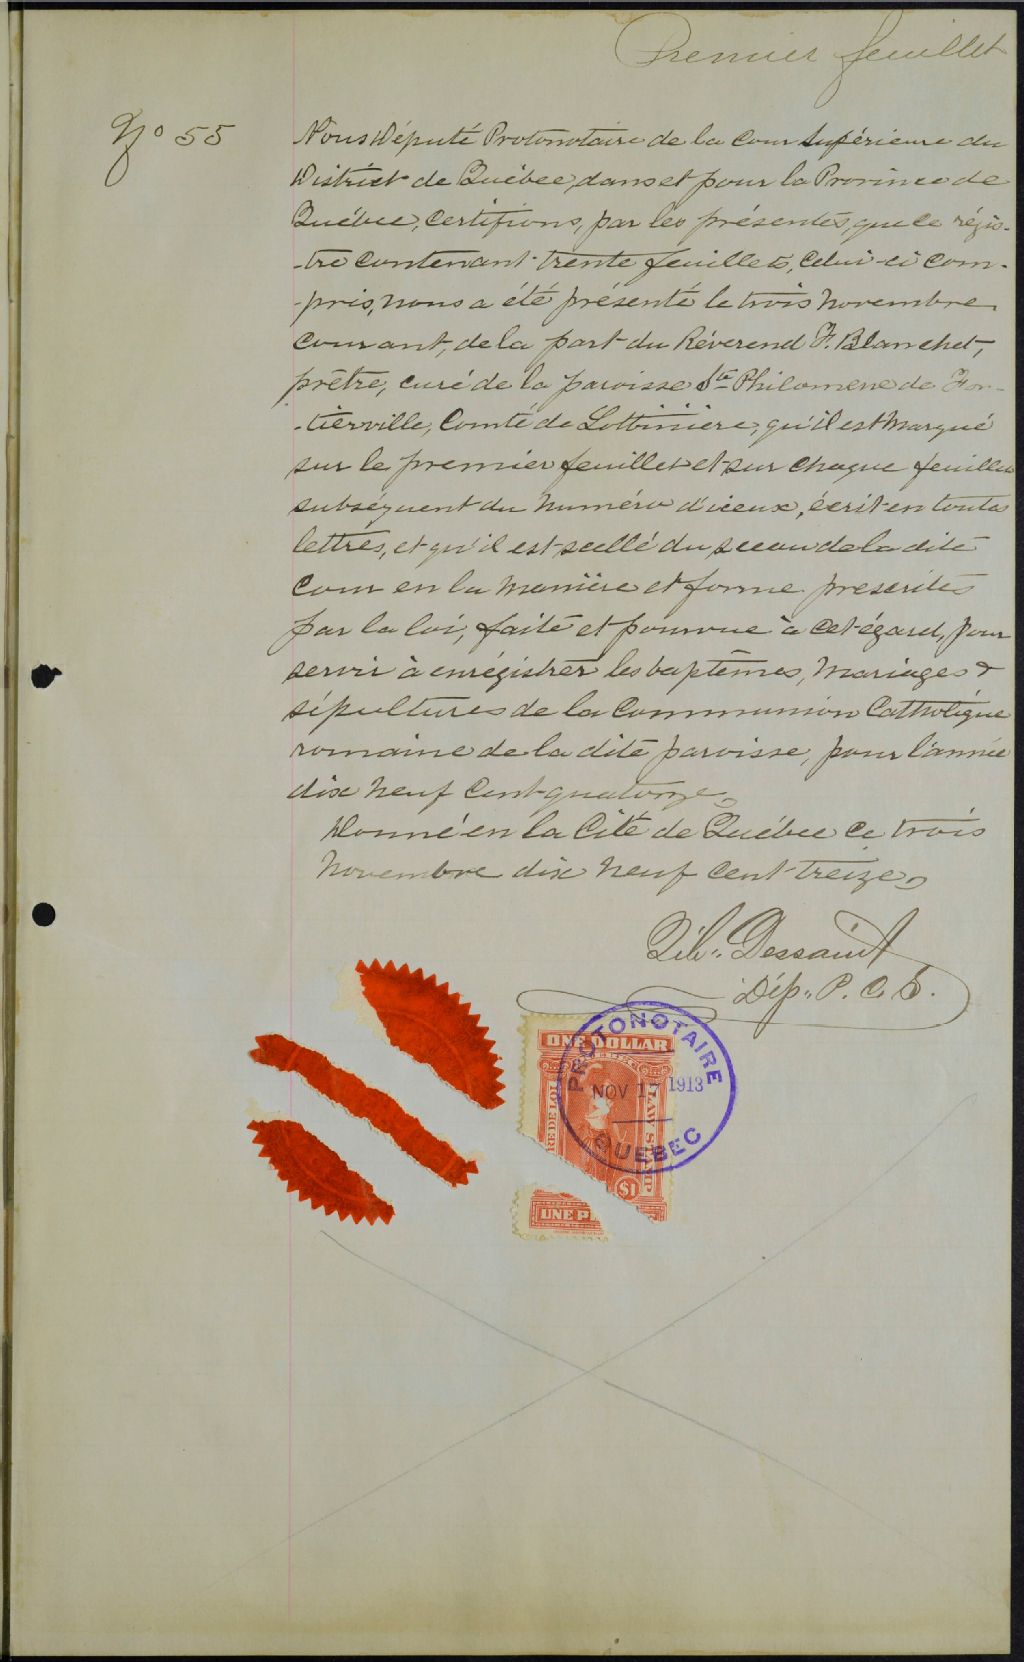 Premier feuillet
No 55
Nous Député Protonotaire de la Cour Supérieure du
District de Québec, dans et pour la Province de
Québec, Certifions, par les présentes, que ce régis-
-tre contenant trente feuillets, celui-ci com-
-pris, nous a été présenté le trois Novembre
courant, de la part du Révérend F. Blanchet,
prêtre, curé de la paroisse Ste Philomène de For-
-tierville, Comté de Lotbinière, qu'il est marqué
sur le premier feuillet et sur chaque feuillet
subséquent du numéro d'iceux, écrit en toutes
lettres, et qu'il est scellé du sceau de la dite
Cour en la manière et forme prescrites
par la loi, faite et pourvue à cet égard, pour
servir à enrégistrer les baptêmes, mariages &
sépultures de la Communion Catholique
romaine de la dite paroisse, pour l'année
dix neuf cent quatorze
Donné en la Cité de Québec ce trois
Novembre dix neuf cent treize
Dessaint
Dép. P. C. S.
PROTONOTAIRE
NOV 17 1913
QUEBEC
ONE DOLLAR
RE DE LOI
LAW STAMP
$1
UNE PI